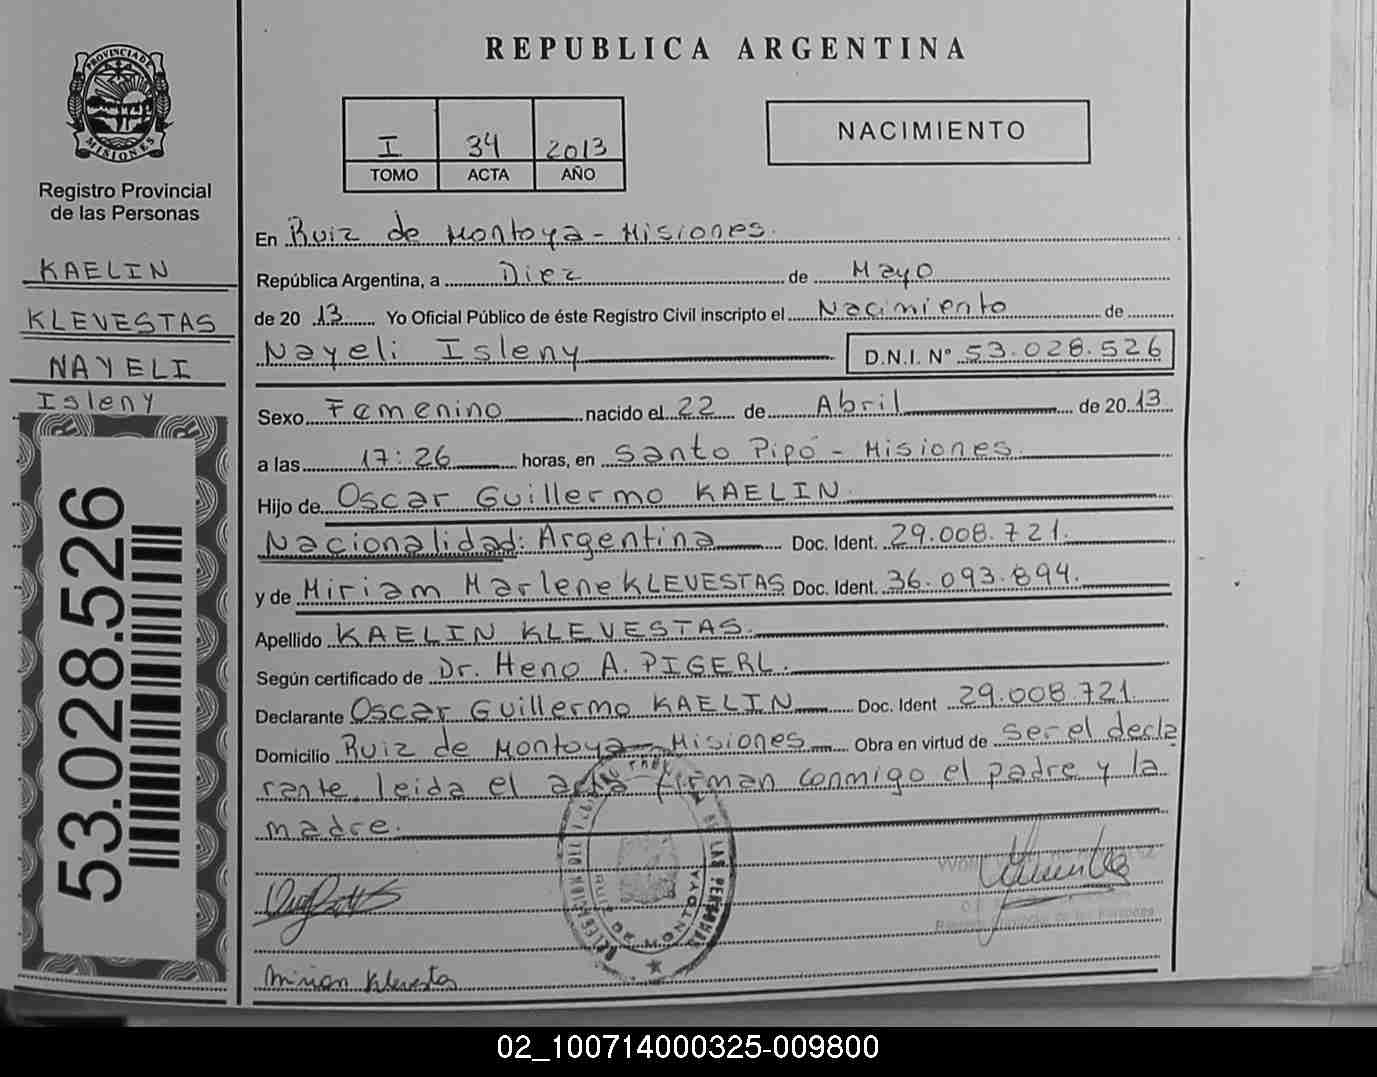 REPUBLICA ARGENTINA
PROVINCIA DE MISIONES
Registro Provincial
de las Personas
KAELIN
KLEVESTAS
NAYELI
Isleny
53.028.526
I 34 2013
TOMO ACTA AÑO
NACIMIENTO
En Ruiz de Montoya - Misiones.
República Argentina, a Diez de Mayo
de 2013 Yo Oficial Público de éste Registro Civil inscripto el Nacimiento de
Nayeli Isleny D.N.I. N° 53.028.526
Sexo Femenino nacido el 22 de Abril de 2013
a las 17:26 horas, en Santo Pipó - Misiones.
Hijo de Oscar Guillermo KAELIN.
Nacionalidad: Argentina Doc. Ident. 29.008.721.
y de Miriam Marlene KLEVESTAS Doc. Ident. 36.093.894.
Apellido KAELIN KLEVESTAS.
Según certificado de Dr. Heno A. PIGERL.
Declarante Oscar Guillermo KAELIN Doc. Ident 29.008.721.
Domicilio Ruiz de Montoya - Misiones Obra en virtud de ser el decla
rante. leida el acta firman conmigo el padre y la
madre.
DE LAS PERSONAS
RUIZ DE MONTOYA
Miriam Klevestas
02_100714000325-009800